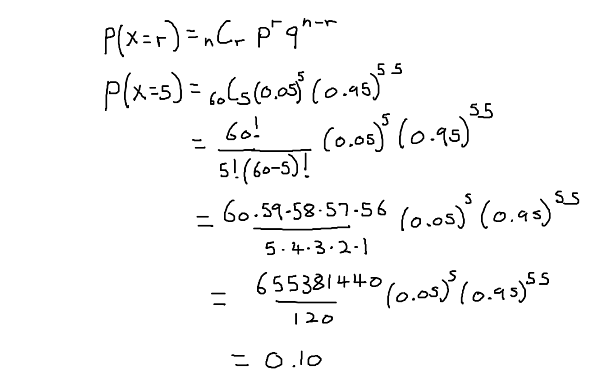 P(x=r) = ₙCᵣ pʳ qⁿ⁻ʳ
P(x=5) = ₆₀C₅ (0.05)⁵ (0.95)⁵⁵
= 60! / 5!(60-5)! (0.05)⁵ (0.95)⁵⁵
= 60·59·58·57·56 / 5·4·3·2·1 (0.05)⁵ (0.95)⁵⁵
= 655381440 / 120 (0.05)⁵ (0.95)⁵⁵
= 0.10